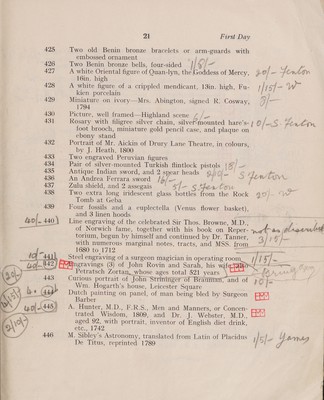 21
First Day
425 Two old Benin bronze bracelets or arm-guards with
embossed ornament
426 Two Benin bronze bells, four-sided 1/8/-
427 A white Oriental figure of Quan-lyn, the Goddess of Mercy,
16in. high 20/- Fenton
428 A white figure of a crippled mendicant, 13in. high, Fu-
kien porcelain 1/15/- W
429 Miniature on ivory—Mrs. Abington, signed R. Cosway,
1794
430 Picture, well framed—Highland scene
431 Rosary with filigree silver chain, silver-mounted hare's-
foot brooch, miniature gold pencil case, and plaque on
ebony stand 10/- S. Fenton
432 Portrait of Mr. Aickin of Drury Lane Theatre, in colours,
by J. Heath, 1800
433 Two engraved Peruvian figures
434 Pair of silver-mounted Turkish flintlock pistols 18/-
435 Antique Indian sword, and 2 spear heads S Fenton
436 An Andrea Ferrara sword
437 Zulu shield, and 2 assegais 5/- S. Fenton
438 Two extra long iridescent glass bottles from the Rock
Tomb at Geba 20/- W
439 Four fossils and a euplectella (Venus flower basket),
and 3 linen hoods
40/- 440 Line engraving of the celebrated Sir Thos. Browne, M.D.,
of Norwich fame, together with his book on Reper-
torium, begun by himself and continued by Dr. Tanner,
with numerous marginal notes, tracts, and MSS. from
1680 to 1712
not as described
3/15/-
10/- 441 Steel engraving of a surgeon magician in operating room 1/15/-
40/- 442 Engravings (3) of John Rovin and Sarah, his wife and
Petratsch Zortan, whose ages total 521 years
443 Curious portrait of John Strininger of Brauman, and of
Wm. Hogarth's house, Leicester Square 10/-
444 Dutch painting on panel, of man being bled by Surgeon
Barber
40/- 445 A. Hunter, M.D., F.R.S., Men and Manners, or Concen-
trated Wisdom, 1809, and Dr. J. Webster, M.D.,
aged 92, with portrait, inventor of English diet drink,
etc., 1742
446 M. Sibley's Astronomy, translated from Latin of Placidus
De Titus, reprinted 1789 1/5/- James